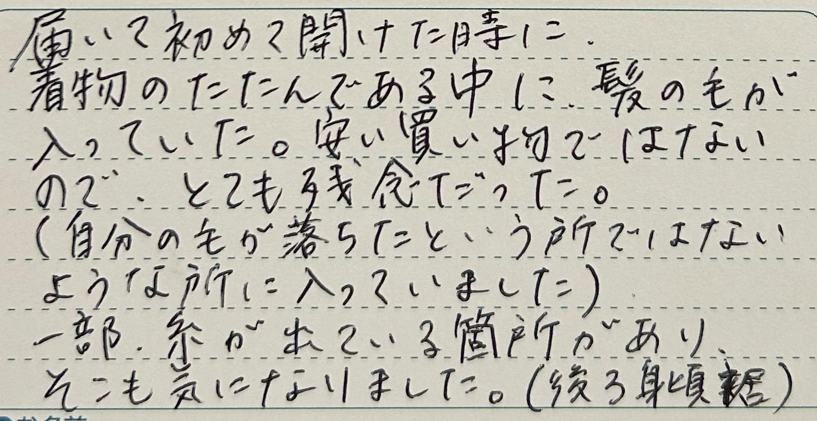 届いて初めて開けた時に、
着物のたたんである中に、髪の毛が
入っていた。安い買い物ではない
ので、とても残念だった。
(自分の毛が落ちたという所ではない
ような所に入っていました)
一部、糸が出ている箇所があり、
そこも気になりました。(後ろ身頃裾)